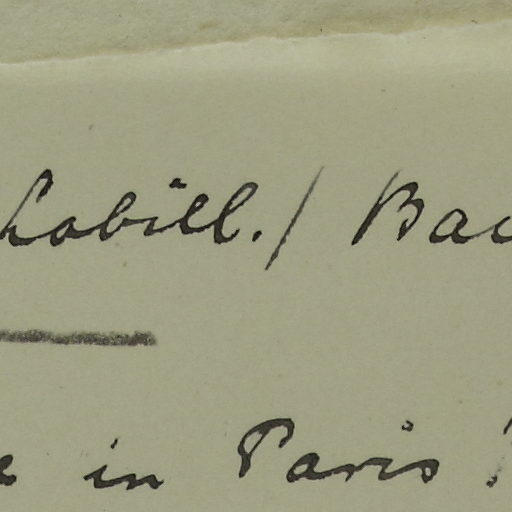 Labill.) Bau
e in Paris!